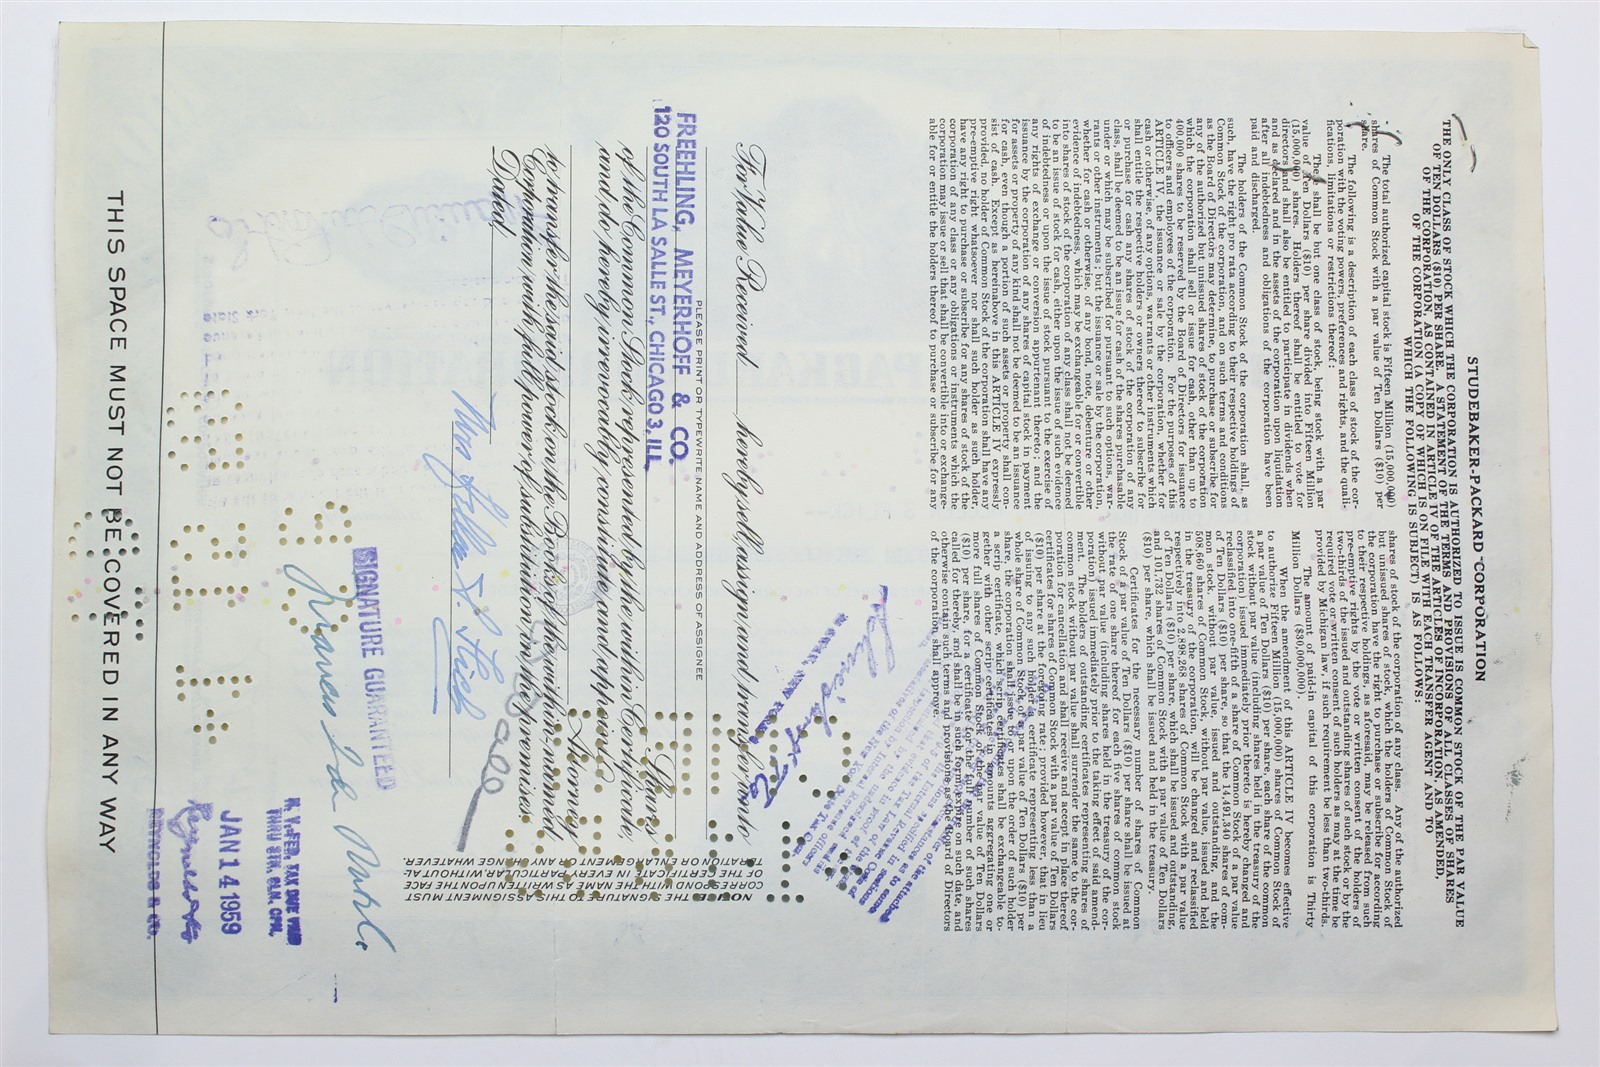 STUDEBAKER-PACKARD CORPORATION
THE ONLY CLASS OF STOCK WHICH THE CORPORATION IS AUTHORIZED TO ISSUE IS COMMON STOCK OF THE PAR VALUE
OF TEN DOLLARS ($10) PER SHARE. A STATEMENT OF THE TERMS AND PROVISIONS OF ALL CLASSES OF SHARES
OF THE CORPORATION, AS CONTAINED IN ARTICLE IV OF THE ARTICLES OF INCORPORATION, AS AMENDED,
OF THE CORPORATION (A COPY OF WHICH IS ON FILE WITH EACH TRANSFER AGENT AND TO
WHICH THE FOLLOWING IS SUBJECT) IS AS FOLLOWS:
The total authorized capital stock is Fifteen Million (15,000,000)
shares of Common Stock with a par value of Ten Dollars ($10) per
share.
The following is a description of each class of stock of the cor-
poration with the voting powers, preferences and rights, and the quali-
fications, limitations or restrictions thereof:
There shall be but one class of stock, being stock with a par
value of Ten Dollars ($10) per share divided into Fifteen Million
(15,000,000) shares. Holders thereof shall be entitled to vote for
directors and shall also be entitled to participate in dividends when
and as declared and in the assets of the corporation upon liquidation
after all indebtedness and obligations of the corporation have been
paid and discharged.
The holders of the Common Stock of the corporation shall, as
such, have the right pro rata according to their respective holdings of
Common Stock of the corporation, and on such terms and conditions
as the Board of Directors may determine, to purchase or subscribe for
any of the authorized but unissued shares of stock of the corporation
which the corporation shall sell or issue for cash, other than up to
400,000 shares to be reserved by the Board of Directors for issuance
to officers and employees of the corporation. For the purposes of this
ARTICLE IV, the issuance or sale by the corporation, whether for
cash or otherwise, of any options, warrants or other instruments which
shall entitle the respective holders or owners thereof to subscribe for
or purchase for cash any shares of stock of the corporation of any
class, shall be deemed to be an issue for cash of the shares purchasable
under or which may be subscribed for pursuant to such options, war-
rants or other instruments; but the issuance or sale by the corporation,
whether for cash or otherwise, of any bond, note, debenture or other
evidence of indebtedness, which may be exchangeable for or convertible
into shares of stock of the corporation of any class shall not be deemed
to be an issue of stock for cash, either upon the issue of such evidence
of indebtedness or upon the issue of stock pursuant to the exercise of
any rights of exchange or conversion appurtenant thereto; and the
issuance by the corporation of any shares of capital stock in payment
for assets or property of any kind shall not be deemed to be an issuance
for cash, even though a portion of such assets or property shall con-
sist of cash. Except as hereinabove in this ARTICLE IV expressly
provided, no holder of Common Stock of the corporation shall have any
pre-emptive right whatsoever nor shall any such holder as such holder,
have any right to purchase or subscribe for any shares of stock of the
corporation of any class or any obligations or instruments which the
corporation may issue or sell that shall be convertible into or exchange-
able for or entitle the holders thereof to purchase or subscribe for any
shares of stock of the corporation of any class. Any of the authorized
but unissued shares of stock, which the holders of Common Stock of
the corporation have the right to purchase or subscribe for according
to their respective holdings, as aforesaid, may be released from such
pre-emptive rights by the vote or written consent of the holders of
two-thirds of the issued and outstanding shares of such stock or by the
required vote or written consent of such holders as may at the time be
provided by Michigan law, if such requirement be less than two-thirds.
The amount of paid-in capital of this corporation is Thirty
Million Dollars ($30,000,000).
When the amendment of this ARTICLE IV becomes effective
to authorize Fifteen Million (15,000,000) shares of Common Stock of
a par value of Ten Dollars ($10) per share, each share of the common
stock without par value (including shares held in the treasury of the
corporation) issued immediately prior thereto is hereby changed and
reclassified into one-fifth of a share of Common Stock of a par value
of Ten Dollars ($10) per share, so that the 14,491,340 shares of com-
mon stock, without par value, issued and outstanding and the
508,660 shares of Common Stock, without par value, issued and held
in the treasury of the corporation, will be changed and reclassified
respectively into 2,898,268 shares of Common Stock with a par value
of Ten Dollars ($10) per share, which shall be issued and outstanding,
and 101,732 shares of Common Stock, with a par value of Ten Dollars
($10) per share, which shall be issued and held in the treasury.
Certificates for the necessary number of shares of Common
Stock of a par value of Ten Dollars ($10) per share shall be issued at
the rate of one share thereof for each five shares of common stock
without par value (including shares held in the treasury of the cor-
poration) issued immediately prior to the taking effect of said amend-
ment. The holders of outstanding certificates representing shares of
common stock without par value shall surrender the same to the cor-
poration for cancellation and shall receive and accept in place thereof
certificates for shares of Common Stock with a par value of Ten Dollars
($10) per share at the foregoing rate; provided however, that in lieu
of issuing to any such holder a certificate representing less than a
whole share of Common Stock of a par value of Ten Dollars ($10) per
share, the corporation shall issue to or upon the order of such holder
a scrip certificate, which scrip certificates shall be exchangeable to-
gether with other scrip certificates in amounts aggregating one or
more full shares of Common Stock of the par value of Ten Dollars
($10) per share, for a certificate for the full number of such shares
called for thereby, and shall be in such form, expire on such date, and
otherwise contain such terms and provisions as the Board of Directors
of the corporation shall approve.
For Value Received hereby sell, assign and transfer unto
PLEASE PRINT OR TYPEWRITE NAME AND ADDRESS OF ASSIGNEE
FREEHLING, MEYERHOFF & CO.
120 SOUTH LA SALLE ST., CHICAGO 3, ILL.
Shares
of the Common Stock represented by the within Certificate,
and do hereby irrevocably constitute and appoint
Attorney
to transfer the said stock on the Books of the within named
Corporation with full power of substitution in the premises.
Dated
NOTICE: THE SIGNATURE TO THIS ASSIGNMENT MUST
CORRESPOND WITH THE NAME AS WRITTEN UPON THE FACE
OF THE CERTIFICATE IN EVERY PARTICULAR, WITHOUT AL-
TERATION OR ENLARGEMENT OR ANY CHANGE WHATEVER.
SIGNATURE GUARANTEED
N. Y. & FED. TAX DUE PAID
THRU STK. CLRN. CPN.
JAN 14 1959
REYNOLDS & CO.
THIS SPACE MUST NOT BE COVERED IN ANY WAY